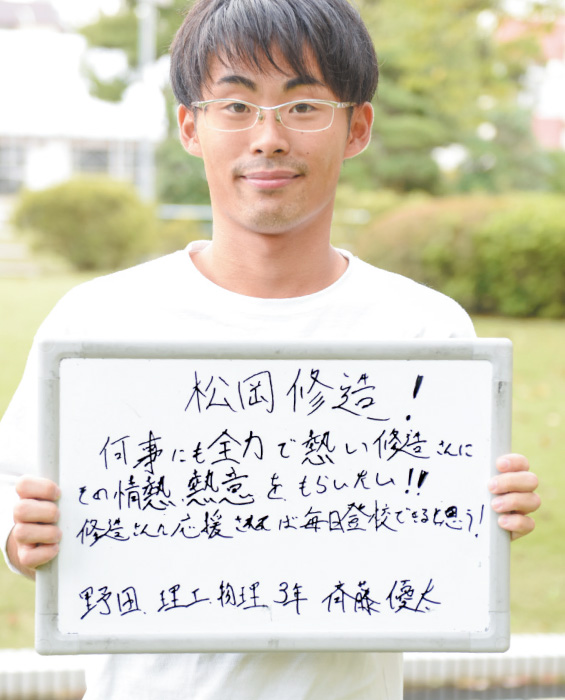 松岡修造!
何事にも全力で熱い修造さんに
その情熱、熱意をもらいたい!!
修造さんに応援されれば毎日登校できると思う!
野田 理工 物理 3年 斉藤優太